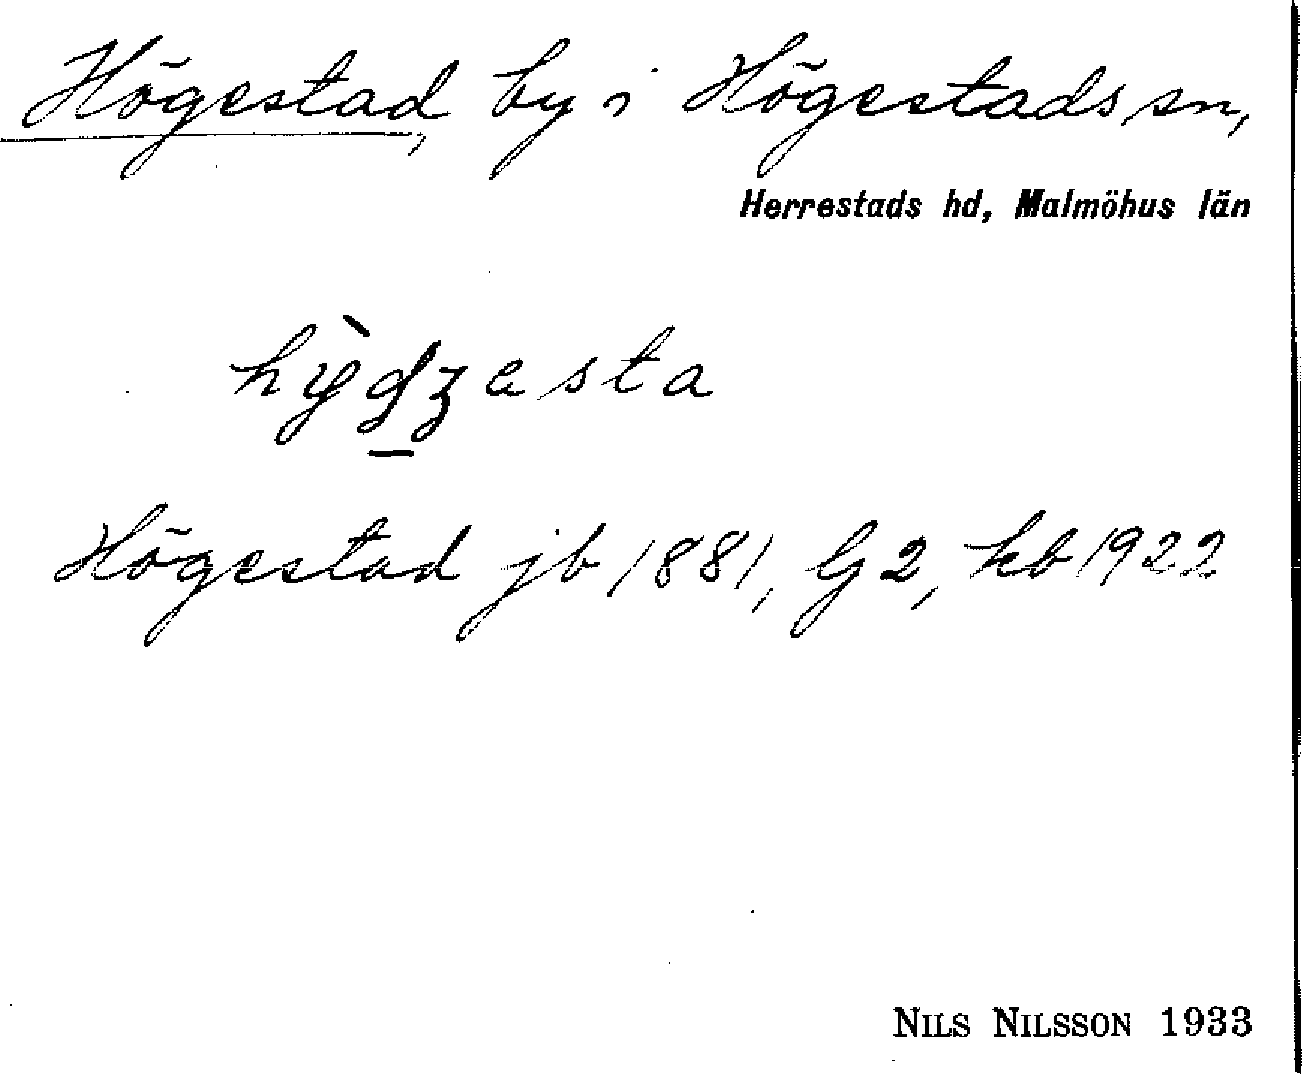 Högestad, by i Högestads sn,
Herrestads hd, Malmöhus län
hỳdʒesta
Högestad jb 1881, G2, kb 1922
NILS NILSSON 1933